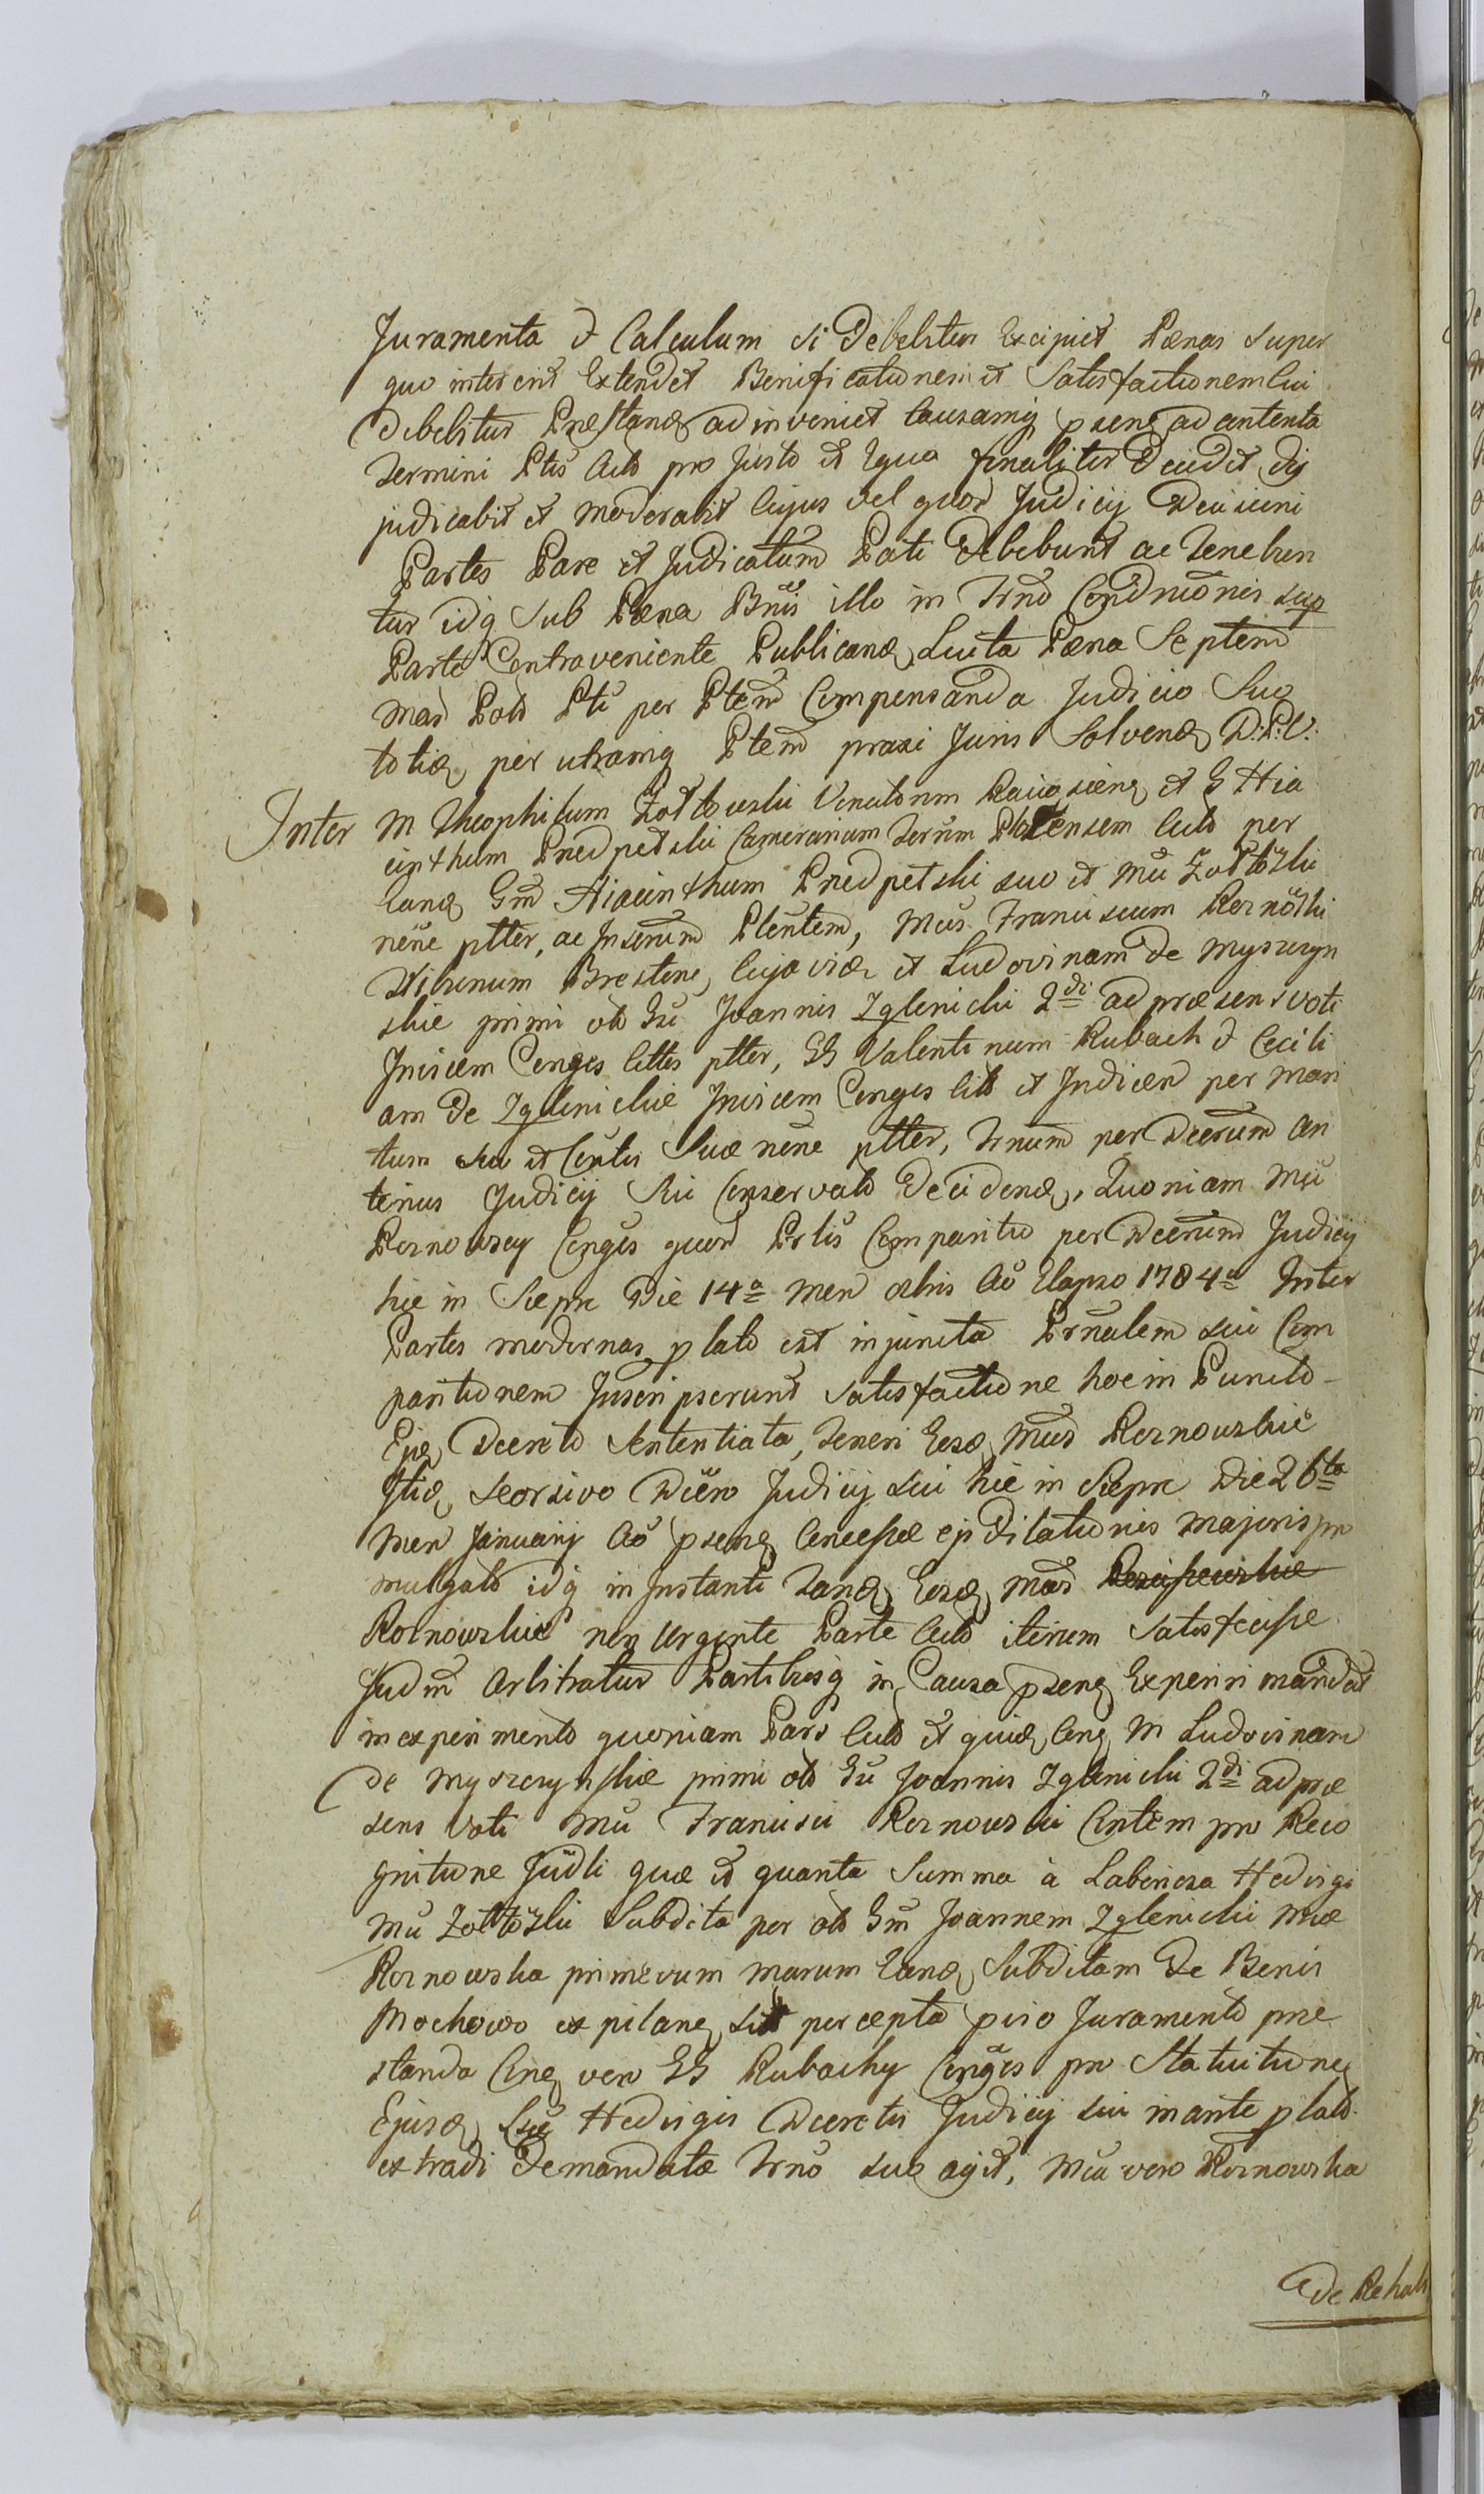 Juramenta & Calculum si Debebitur Excipiet Pænas super
quo intererit Extendet Benificationem et Satisfactionem Cui
Debebitur Præstand adinveniet Causamq psenq ad contenta
Termini Ptis Acto pro Justo et Equo finaliter Decidet dij
judicabit et moderabit Cujus vel quor Judicij Decisioni
Partes Pare et Judicatum Pati Debebunt ac Tenebun
tur idq sub Pæna Bnis illo in Trno Condnionis sup
Parte Contraveniente Publicand Luita Pæna Septem
Mar Pol Pti per Ptem Compensanda Judicio Suo
totid per utramq Ptem praxi Juris Solvend D.P.V.
Inter M Theophilum Żołtowski Venatorem Raciąsien et G Hia
cinthum Predpetski Camerarium Terrum Plocensem Acto per
eand Gm Hiacinthum Predpetski suo et Mu Żołtowski
nene ptter, ac Inserum Pltntem, Mus Franciscum Roznowski
Tribunum Brestene, Cujaviæ et Ludovinam de Myszczyn
skie primi olo Gu Joannis Zglenicki 2di ad præsens voti
Invicem Conges Cittos ptter, GG Valentinum Rubach & Cecili
am de Zglenickie Invicem Conges Cito et Indicen per Mari
tum suu et Contis suæ nene ptter, Trnum per Decrum An
terius Judicij Sui Conservato Decidend, Quoniam Mu
Roznowscy Conges quor Prlis Comparitio per Decrum Judicij
hic in Sierpc Die 14a Men xbris Ao Elapso 1784o Inter
Partes modernas plato est injuncta Prnalem sui Com
paritionem Inscripserunt Satisfactione hoc in Puncto
Ejæ Decreto Sententiata, Teneri Eosd Mus Roznowskie
Itid seorsivo Decro Judicij sui hic in Sierpc Die 26ta
Men Januarij Ao psenq Concessæ ej Dilationis Majoris pro
mulgato idq in Instanti Tand Eosd Mos
Roznowskie non Urgente Parte Acto iterum Satisfecisse
Judm Arbitratur Partibusq in Causa psenq Experiri mandat
in experimento quoniam Pars Acto et quid Cnq M Ludovinam
de Myszczynskie primi olo Gu Joannis Zglenicki 2di ad præ
sens Voti Mu Francisci Roznowski Contem pro Reco
gnitione Judli quæ et quanta Summa à Laboriosa Hedvigi
Mu Żołtowski Subdita per olo Gm Joannem Zglenicki Mæ
Roznowska primævum Marum Eand Subditam de Bonis
Mochowo expiland sit percepta pvio Juramento præ
standa Cnq vero GG Rubachy Conges pro Statuitione
Ejusd Hedvigis Decretis Judicij sui in ante plato
extradi Demandatæ Trno suo agit, Mcu vero Roznowska
De Rehab